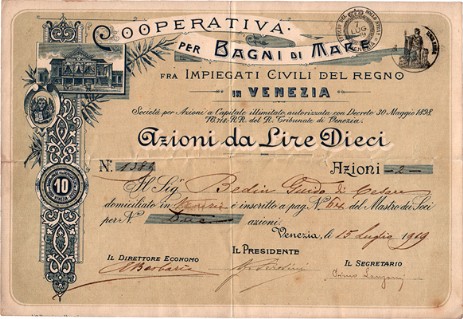 COOPERATIVA
PER BAGNI DI MARE
FRA IMPIEGATI CIVILI DEL REGNO
IN VENEZIA
Società per Azioni a Capitale illimitato, autorizzata con Decreto 30 Maggio 1898
del R. Tribunale di Venezia.
Azioni da Lire Dieci
N.
Azioni 2
Il Sig. Bedin Guido di Cesare
domiciliato in Venezia è inscritto a pag. N. 64 del Mastro dei Soci
per N. Due azioni.
Venezia, li 15 Luglio 1919
IL DIRETTORE ECONOMO
IL PRESIDENTE
IL SEGRETARIO
10